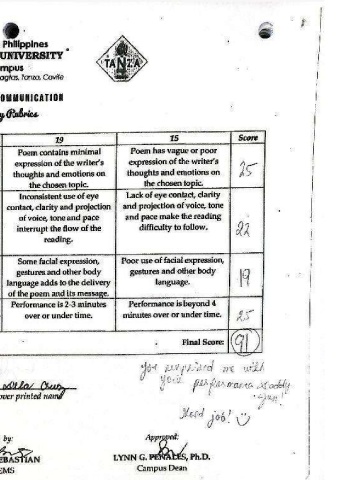 Philippines
UNIVERSITY
mpus
Tanza, Cavite
TANZA
OMMUNICATION
y Rubrics
19 15 Score
Poem contains minimal expression of the writer's thoughts and emotions on the chosen topic.
Poem has vague or poor expression of the writer's thoughts and emotions on the chosen topic.
25
Inconsistent use of eye contact, clarity and projection of voice, tone and pace interrupt the flow of the reading.
Lack of eye contact, clarity and projection of voice, tone and pace make the reading difficulty to follow.
22
Some facial expression, gestures and other body language adds to the delivery of the poem and its message.
Poor use of facial expression, gestures and other body language.
19
Performance is 2-3 minutes over or under time.
Performance is beyond 4 minutes over or under time.
25
Final Score: 91
You surprised me with
your performance
Good job! :)
Dela Cruz
over printed name
by: Approved:
EBASTIAN LYNN G. PEÑALES, Ph.D.
EMS Campus Dean